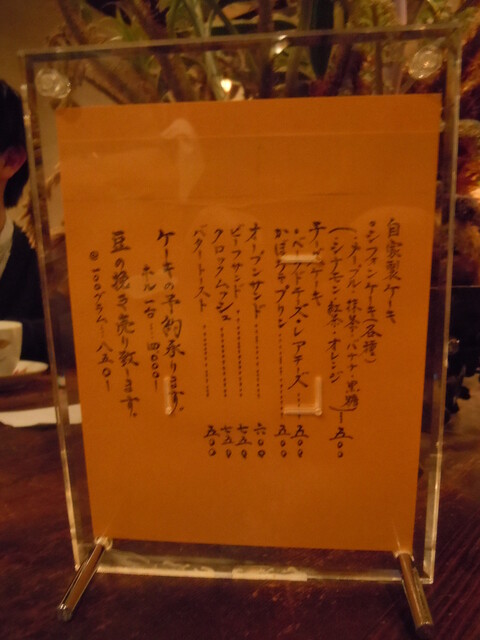 自家製ケーキ
・シフォンケーキ(各種)
(・メープル・抹茶・バナナ・黒糖
・シナモン・紅茶・オレンジ)―五〇〇
チーズケーキ
・ベイクドチーズ・レアチーズ……五〇〇
かぼちゃプリン……五〇〇
オープンサンド……六〇〇
ビーフサンド……七五〇
クロックムッシュ……七五〇
バタートースト……五〇〇
ケーキの予約承ります。
ホール一台…四〇〇〇ー
豆の挽き売り致します。
@一〇〇グラム……八五〇ー